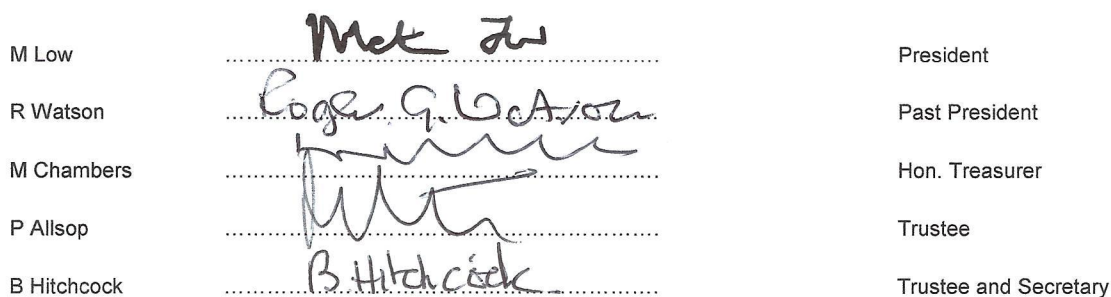 M Low President
R Watson Roger G. Watson Past President
M Chambers Hon. Treasurer
P Allsop Trustee
B Hitchcock B Hitchcock Trustee and Secretary